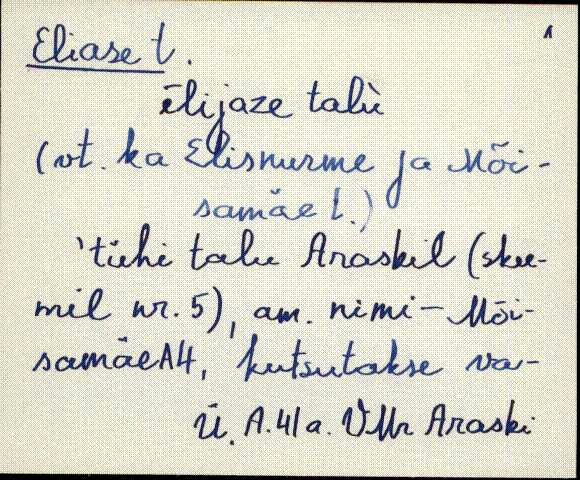 1
Eliase t.
ēlijaze talù
(vt. ka Elisnurme ja Mõi-
samäe t.)
'tühi talu Araskil (skee-
mil nr. 5), am. nimi – Mõi-
samäe A4, kutsutakse va-
Ü. A. 41 a. VMr Araski